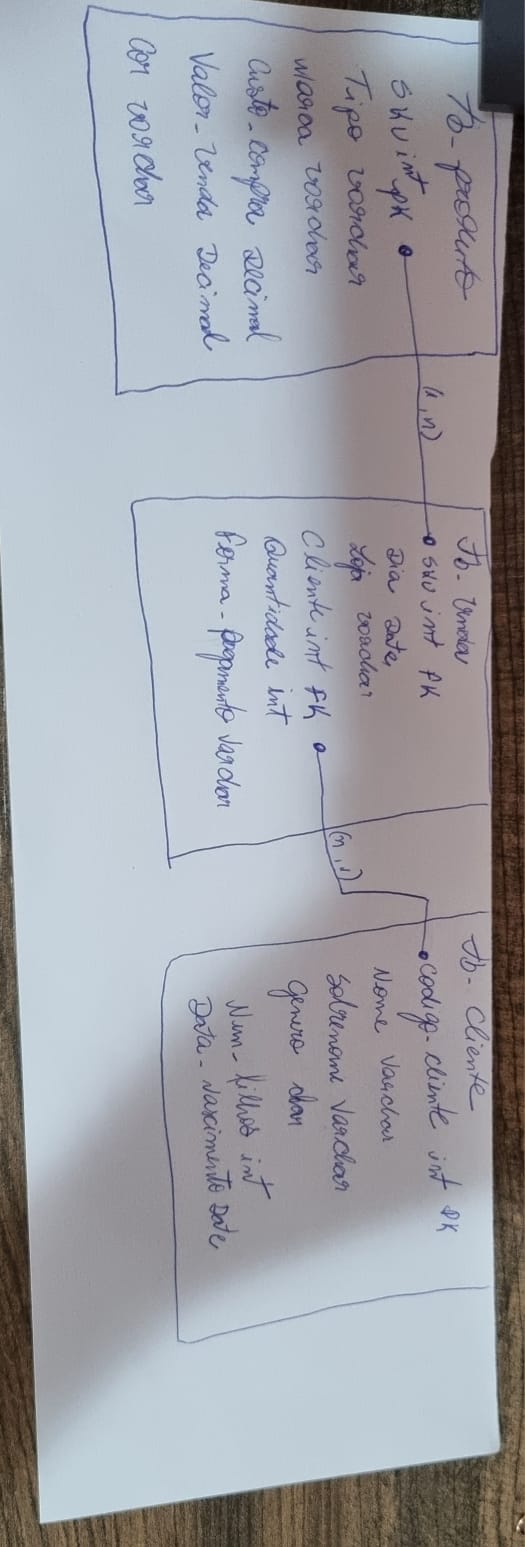 Tb-produto
SKU int pk
Tipo varchar
Marca varchar
Custo-compra Decimal
Valor-Venda Decimal
Cor varchar
(1,n)
Tb-Vendas
SKU int PK
Dia Date
Loja varchar
Cliente int FK
Quantidade int
Forma-pagamento Varchar
(n,1)
Tb-Cliente
Codigo-cliente int PK
Nome Varchar
Sobrenome Varchar
Genero char
Num-Filhos int
Data-Nascimento Date